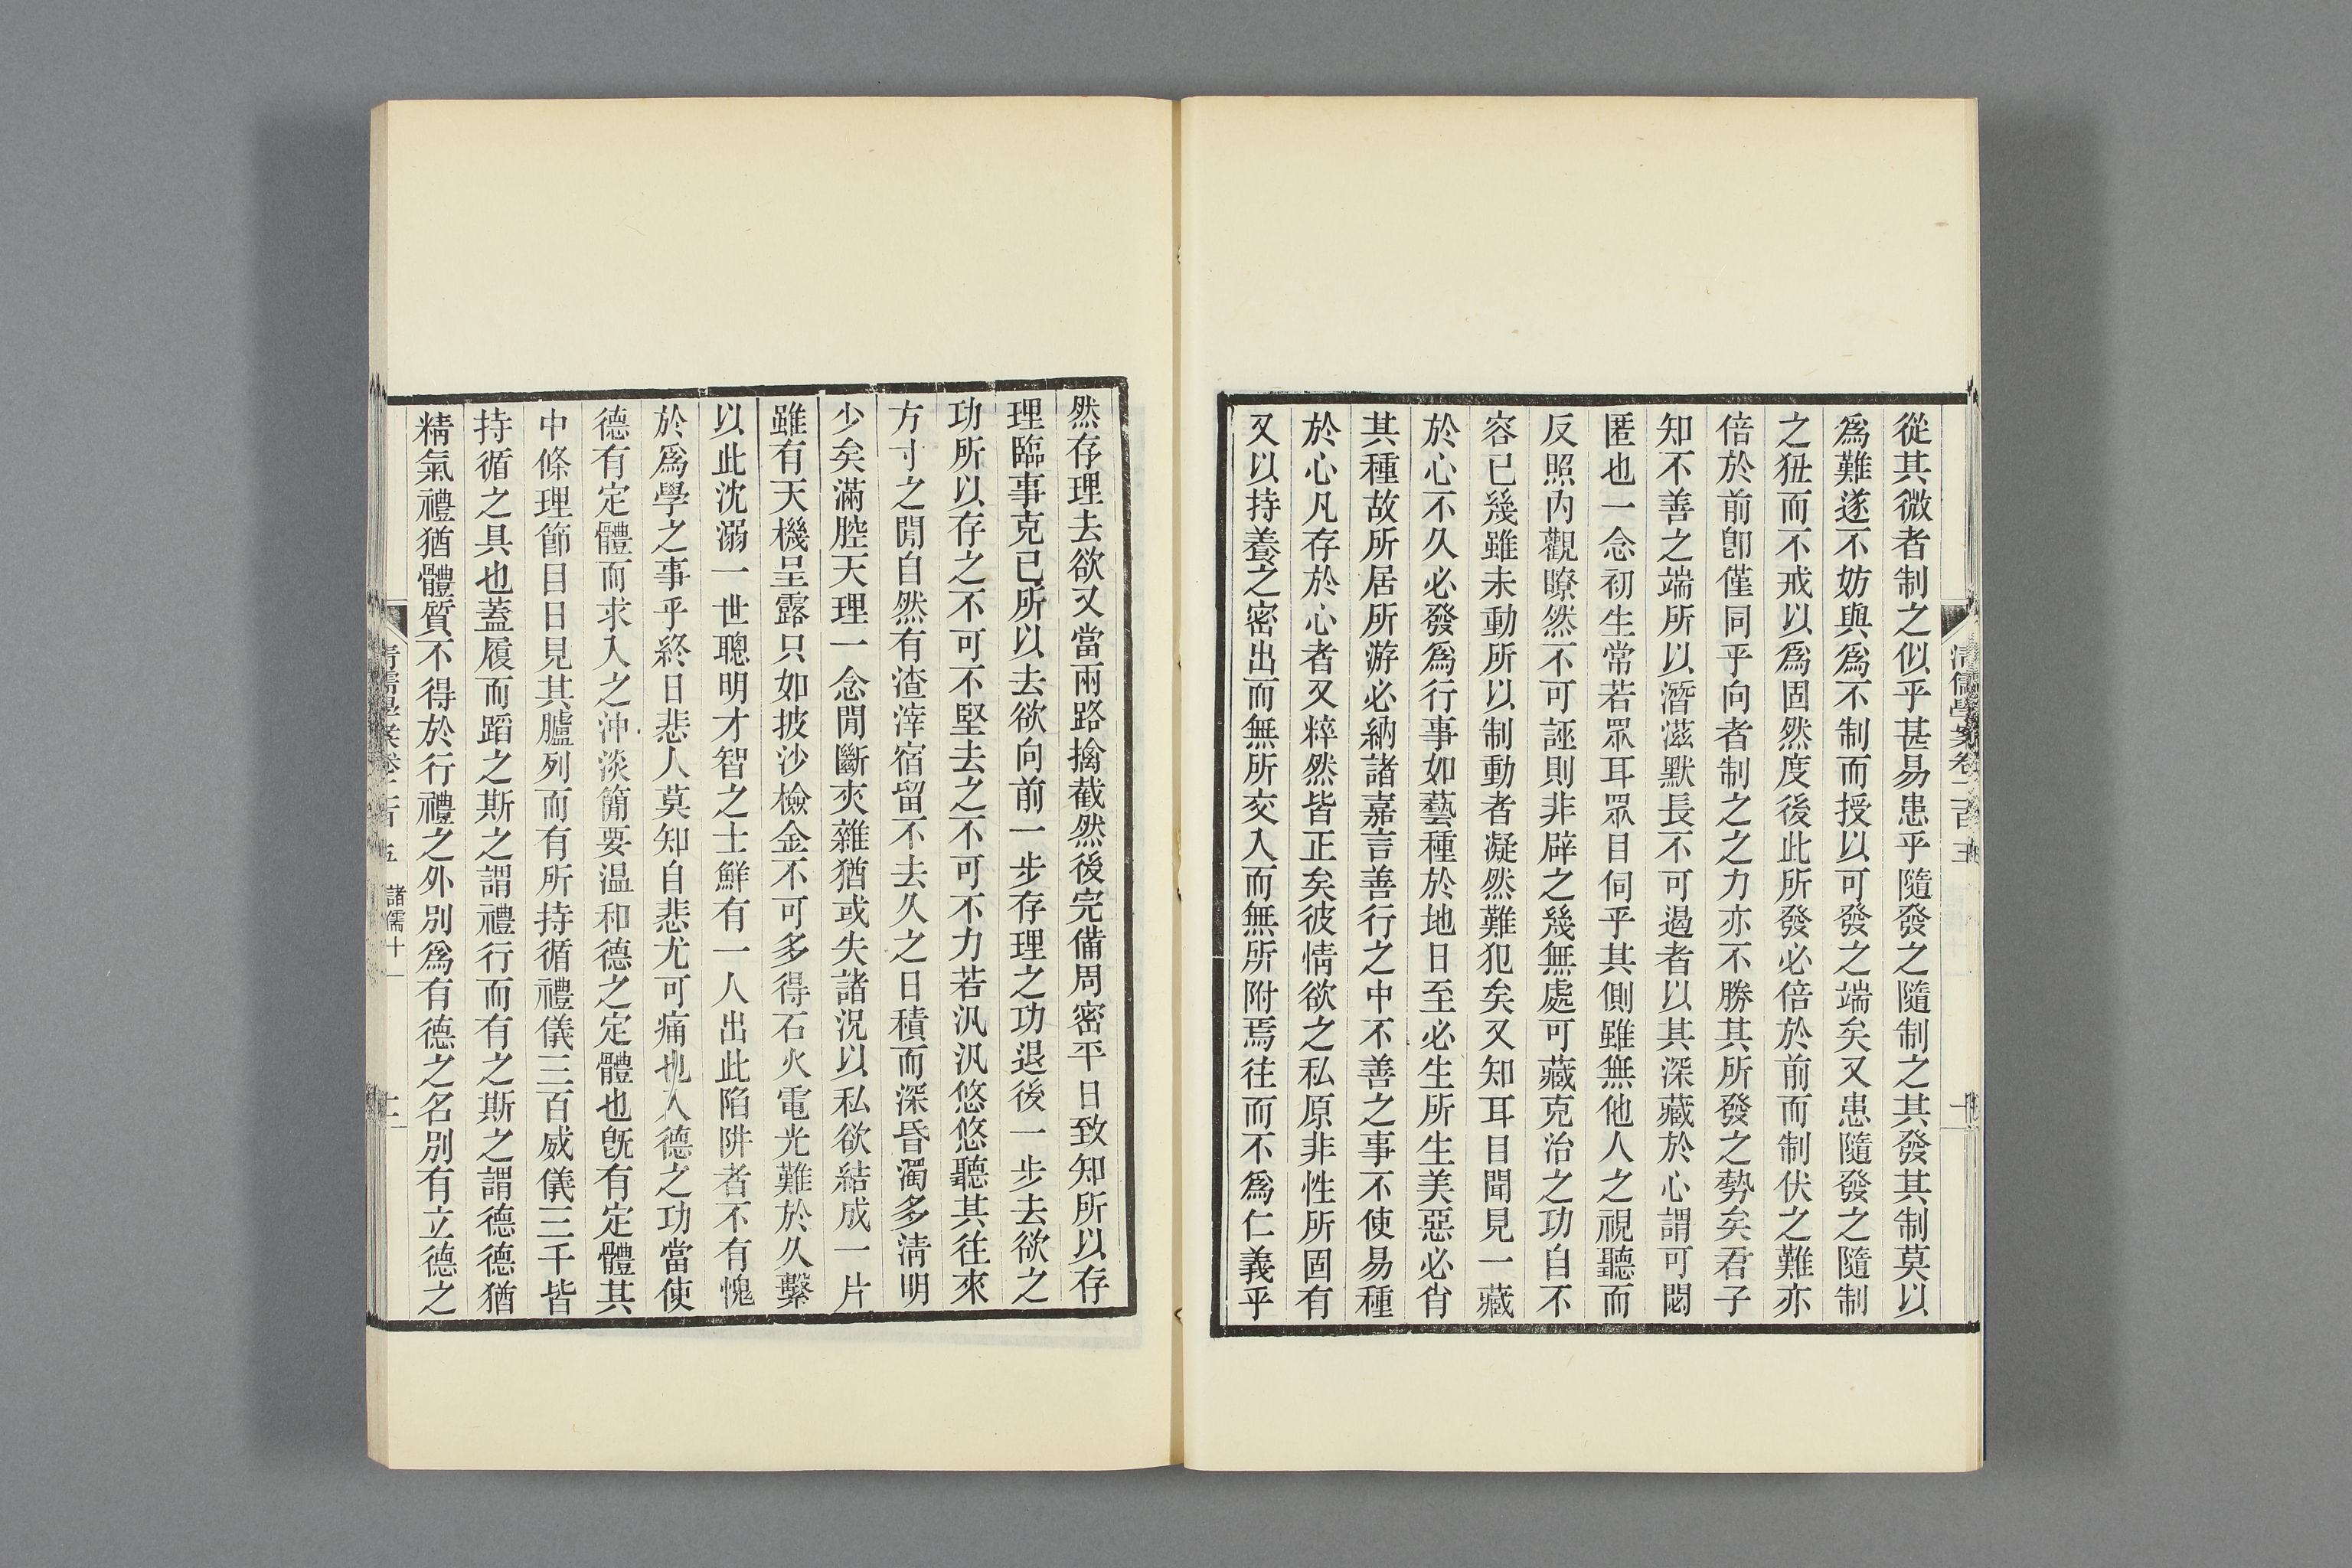 清儒學案卷二百五
從其微者制之似乎甚易患乎隨發之隨制之其發其制莫以
爲難遂不妨與爲不制而授以可發之端矣又患隨發之隨制
之狃而不戒以爲固然度後此所發必倍於前而制伏之難亦
倍於前卽僅同乎向者制之之力亦不勝其所發之勢矣君子
知不善之端所以潛滋默長不可遏者以其深藏於心謂可閟
匿也一念初生常若眾耳眾目伺乎其側雖無他人之視聽而
反照內觀瞭然不可誣則非辟之幾無處可藏克治之功自不
容已幾雖未動所以制動者凝然難犯矣又知耳目聞見一藏
於心不久必發爲行事如藝種於地日至必生所生美惡必肖
其種故所居所游必納諸嘉言善行之中不善之事不使易種
於心凡存於心者又粹然皆正矣彼情欲之私原非性所固有
又以持養之密出而無所交入而無所附焉往而不爲仁義乎
然存理去欲又當兩路擒截然後完備周密平日致知所以存
理臨事克已所以去欲向前一步存理之功退後一步去欲之
功所以存之不可不堅去之不可不力若汎汎悠悠聽其往來
方寸之閒自然有渣滓宿留不去久之日積而深昏濁多清明
少矣滿腔天理一念閒斷夾雜猶或失諸況以私欲結成一片
雖有天機呈露只如披沙檢金不可多得石火電光難於久繫
以此沈溺一世聰明才智之士鮮有一人出此陷阱者不有愧
於爲學之事乎終日悲人莫知自悲尤可痛也入德之功當使
德有定體而求入之沖淡簡要温和德之定體也旣有定體其
中條理節目日見其臚列而有所持循禮儀三百威儀三千皆
持循之具也蓋履而蹈之斯之謂禮行而有之斯之謂德德猶
精氣禮猶體質不得於行禮之外別爲有德之名別有立德之
清儒學案卷二百五 諸儒十一